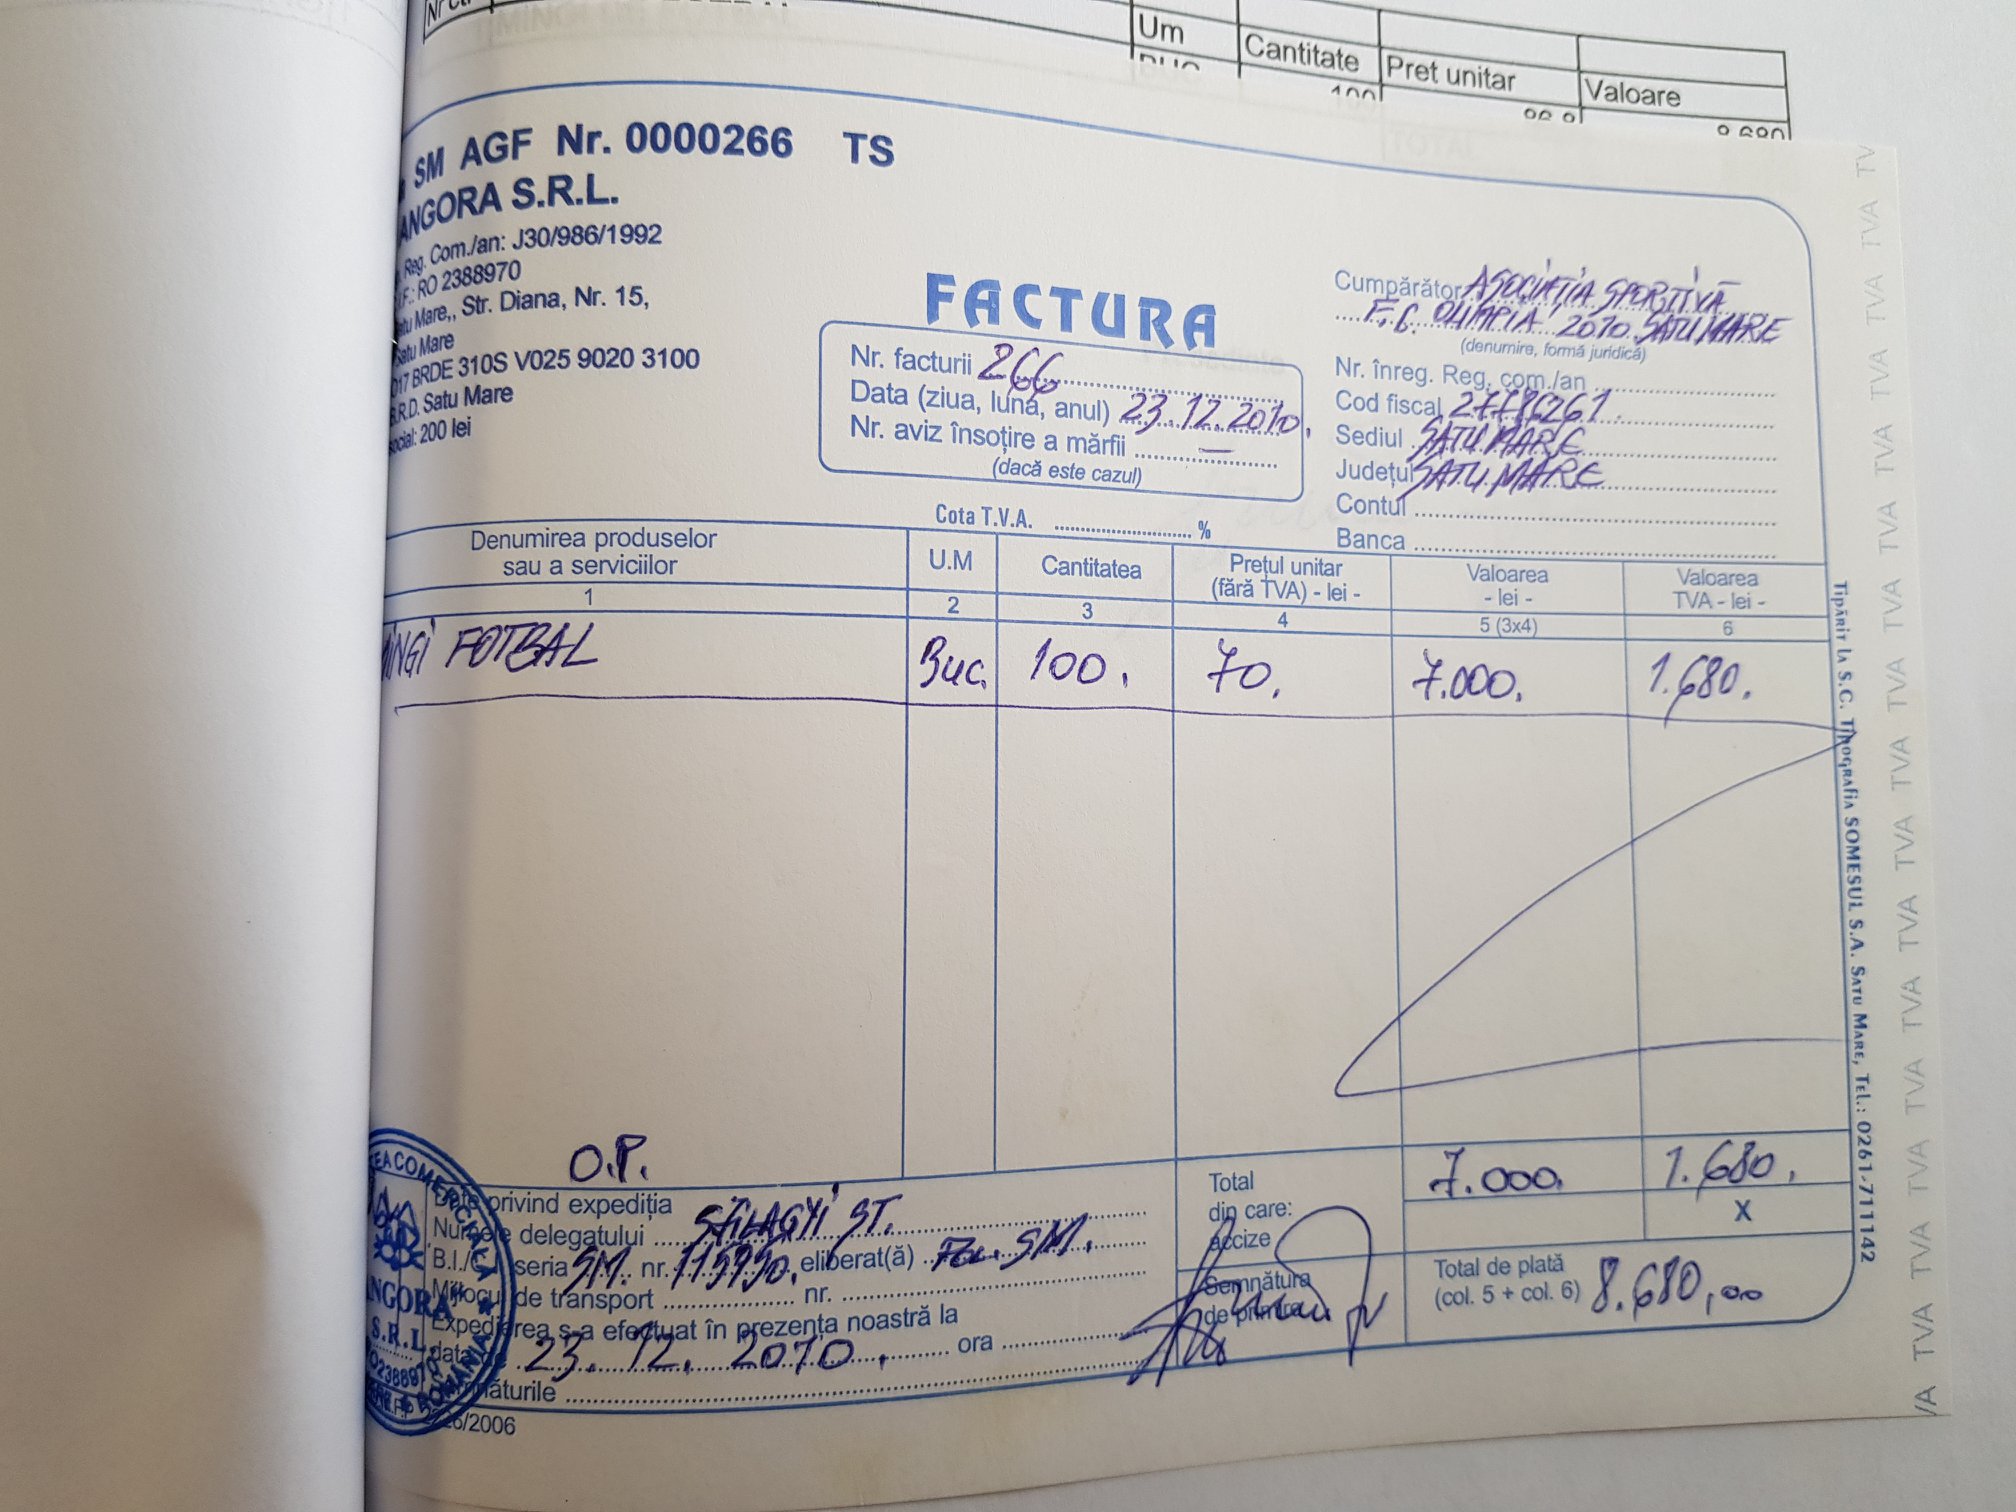 Um Cantitate Pret unitar Valoare
SM AGF Nr. 0000266 TS
ANGORA S.R.L.
Reg. Com./an: J30/986/1992
.F.: RO 2388970
atu Mare,, Str. Diana, Nr. 15,
Satu Mare
017 BRDE 310S V025 9020 3100
B.R.D. Satu Mare
social: 200 lei
FACTURA
Nr. facturii 266
Data (ziua, luna, anul) 23.12.2010.
Nr. aviz însoțire a mărfii —
(dacă este cazul)
Cumpărător ASOCIAȚIA SPORTIVĂ
F.C. OLIMPIA 2010 SATU MARE
(denumire, formă juridică)
Nr. înreg. Reg. com./an
Cod fiscal 27786261.
Sediul SATU MARE
Județul SATU MARE
Contul
Banca
Cota T.V.A. %
Denumirea produselor sau a serviciilor U.M Cantitatea Prețul unitar (fără TVA) - lei - Valoarea - lei - Valoarea TVA - lei -
1 2 3 4 5 (3x4) 6
MINGI FOTBAL Buc. 100. 70. 7.000. 1.680.
O.P.
privind expediția
delegatului SZILAGYI ST.
B.I./C.I. seria SM. nr. 115990. eliberat(ă) Pol. SM.
Mijlocul de transport nr.
Expedierea s-a efectuat în prezența noastră la
data de 23. 12. 2010. ora
Semnăturile
/2006
Total 7.000. 1.680.
din care:
accize X
Semnătura
de primire
Total de plată
(col. 5 + col. 6) 8.680,00
ANGORA
S.R.L.
ROMÂNIA
Tipărit la S.C. Tipografia SOMESUL S.A. Satu Mare, Tel.: 0261-711142
TVA TVA TVA TVA TVA TVA TVA TVA TVA TVA TVA TVA TVA TVA TVA TVA